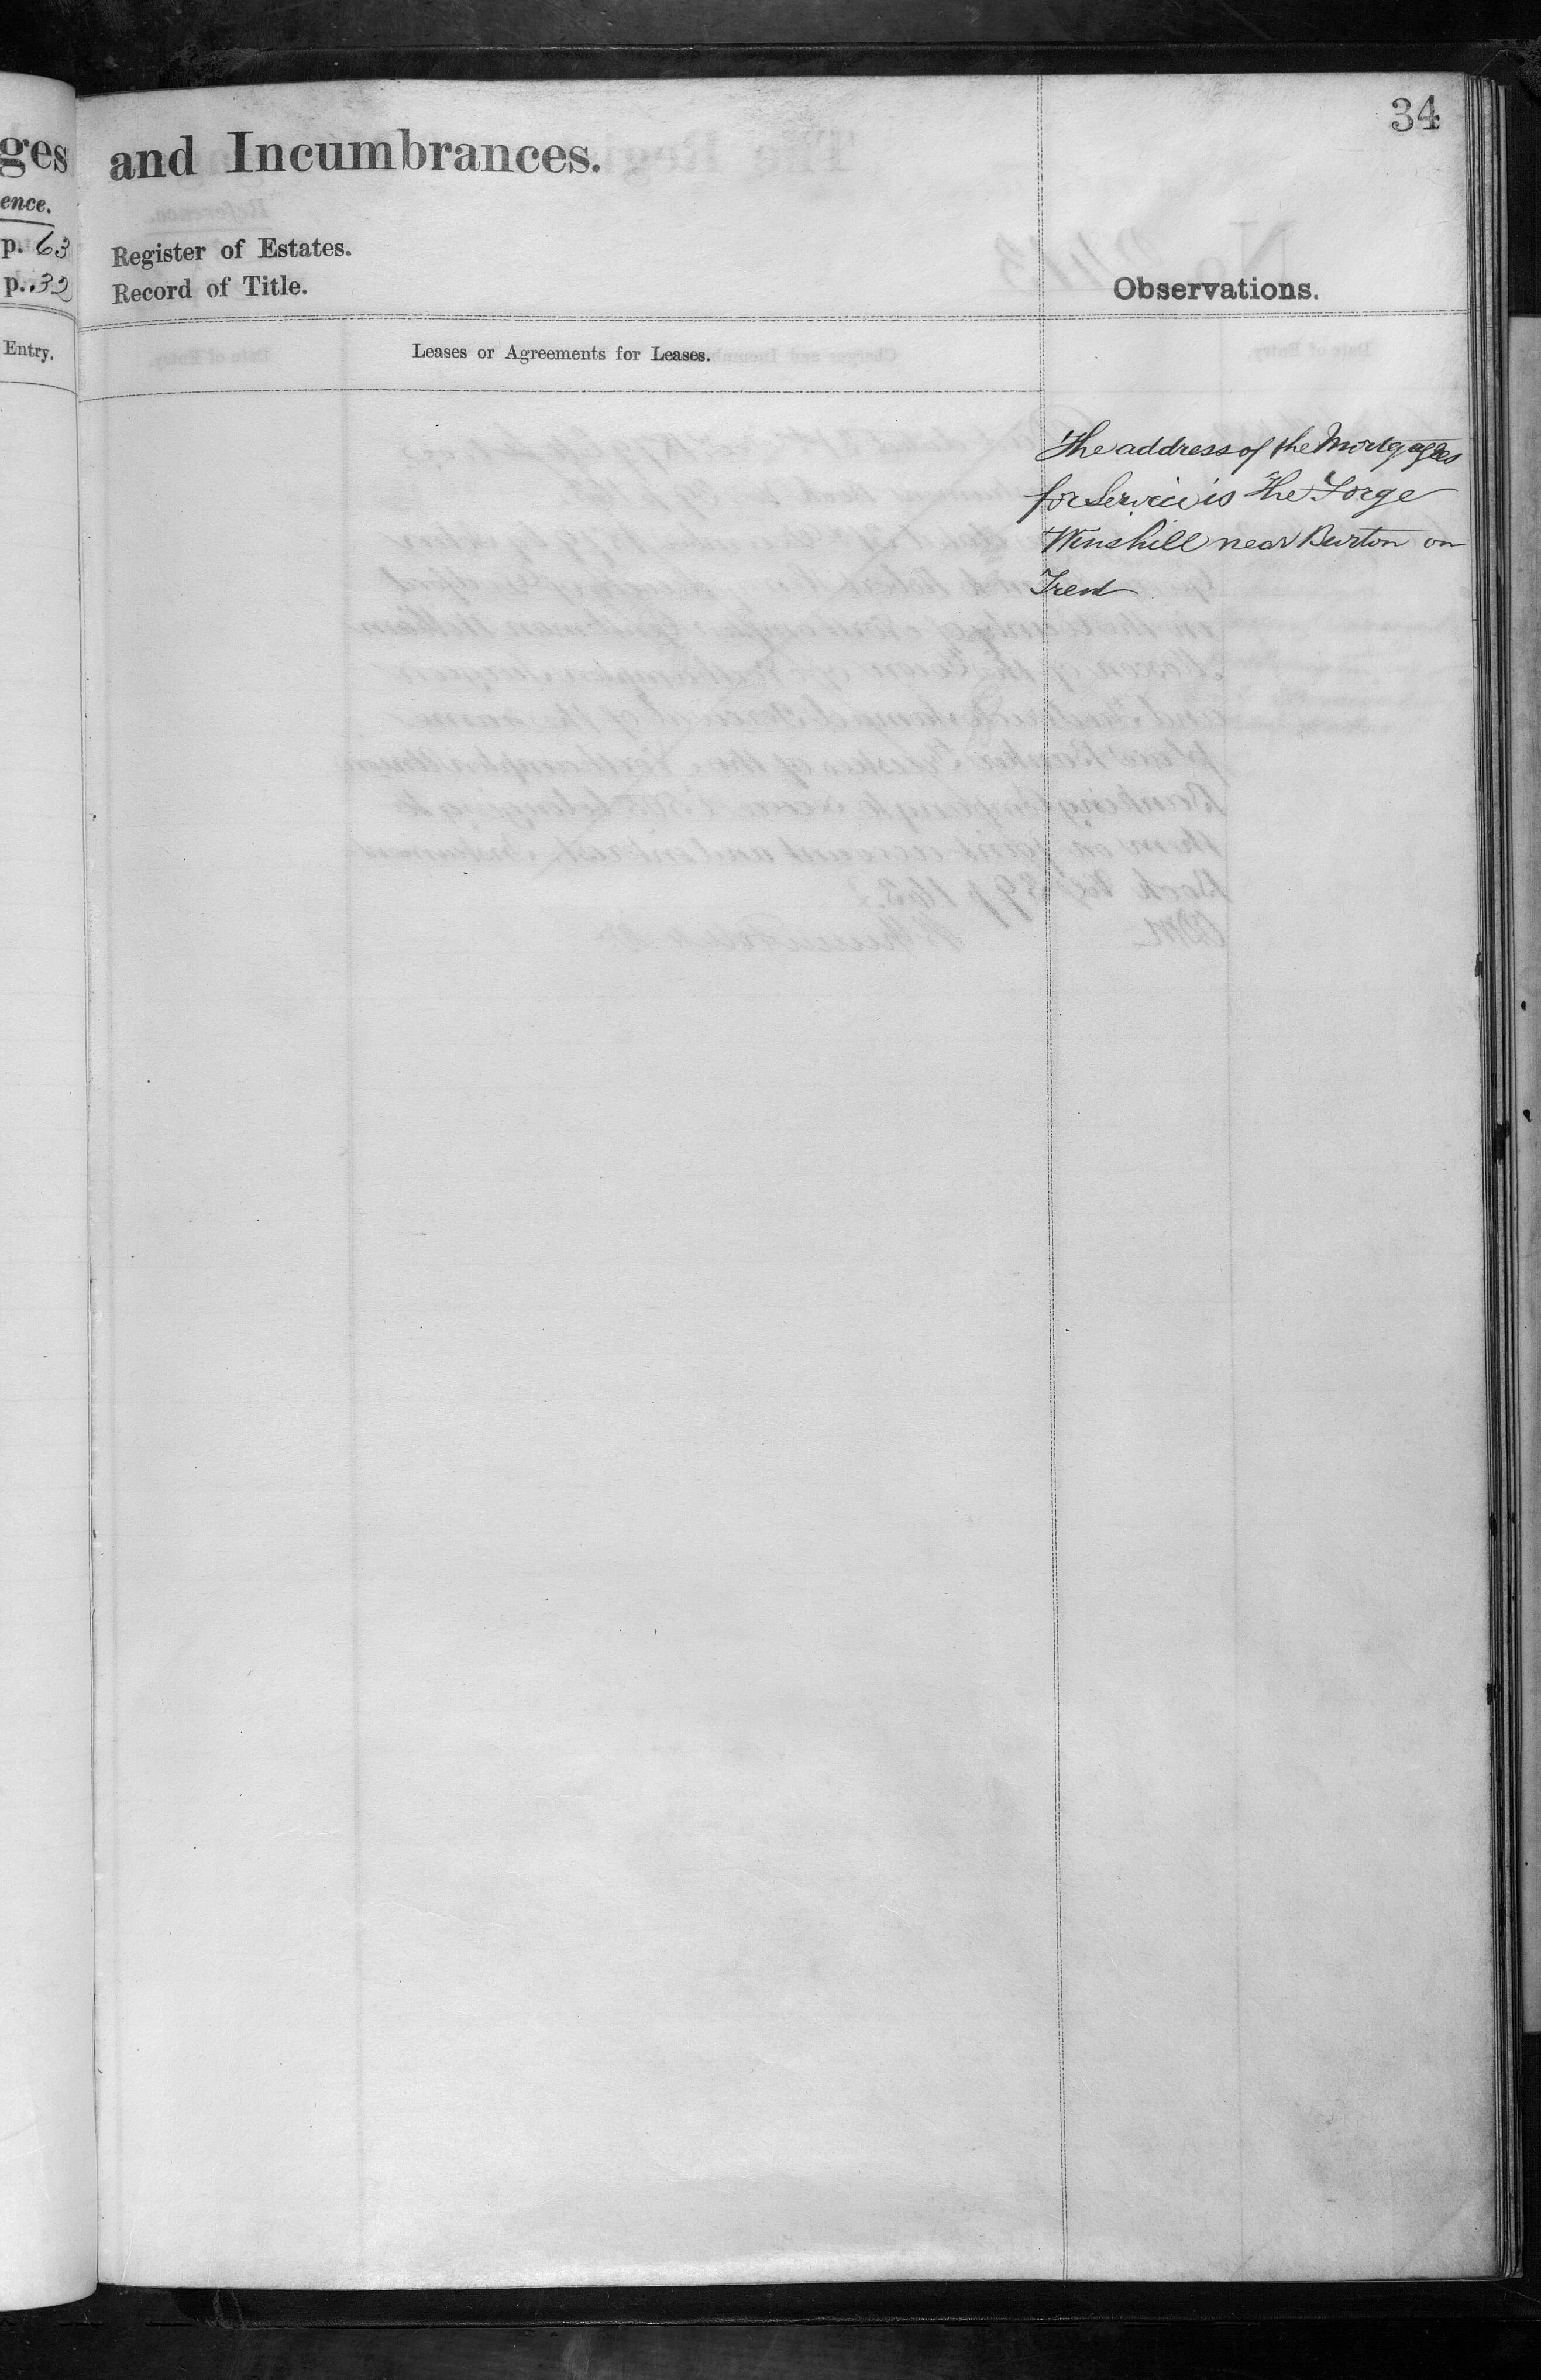 34
ges and Incumbrances.
ence.
p. 63 Register of Estates.
p. 32 Record of Title.
Observations.
Entry.
Leases or Agreements for Leases.
The address of the Mortgagees
for Service is The Forge
Winshill near Burton on
Trent